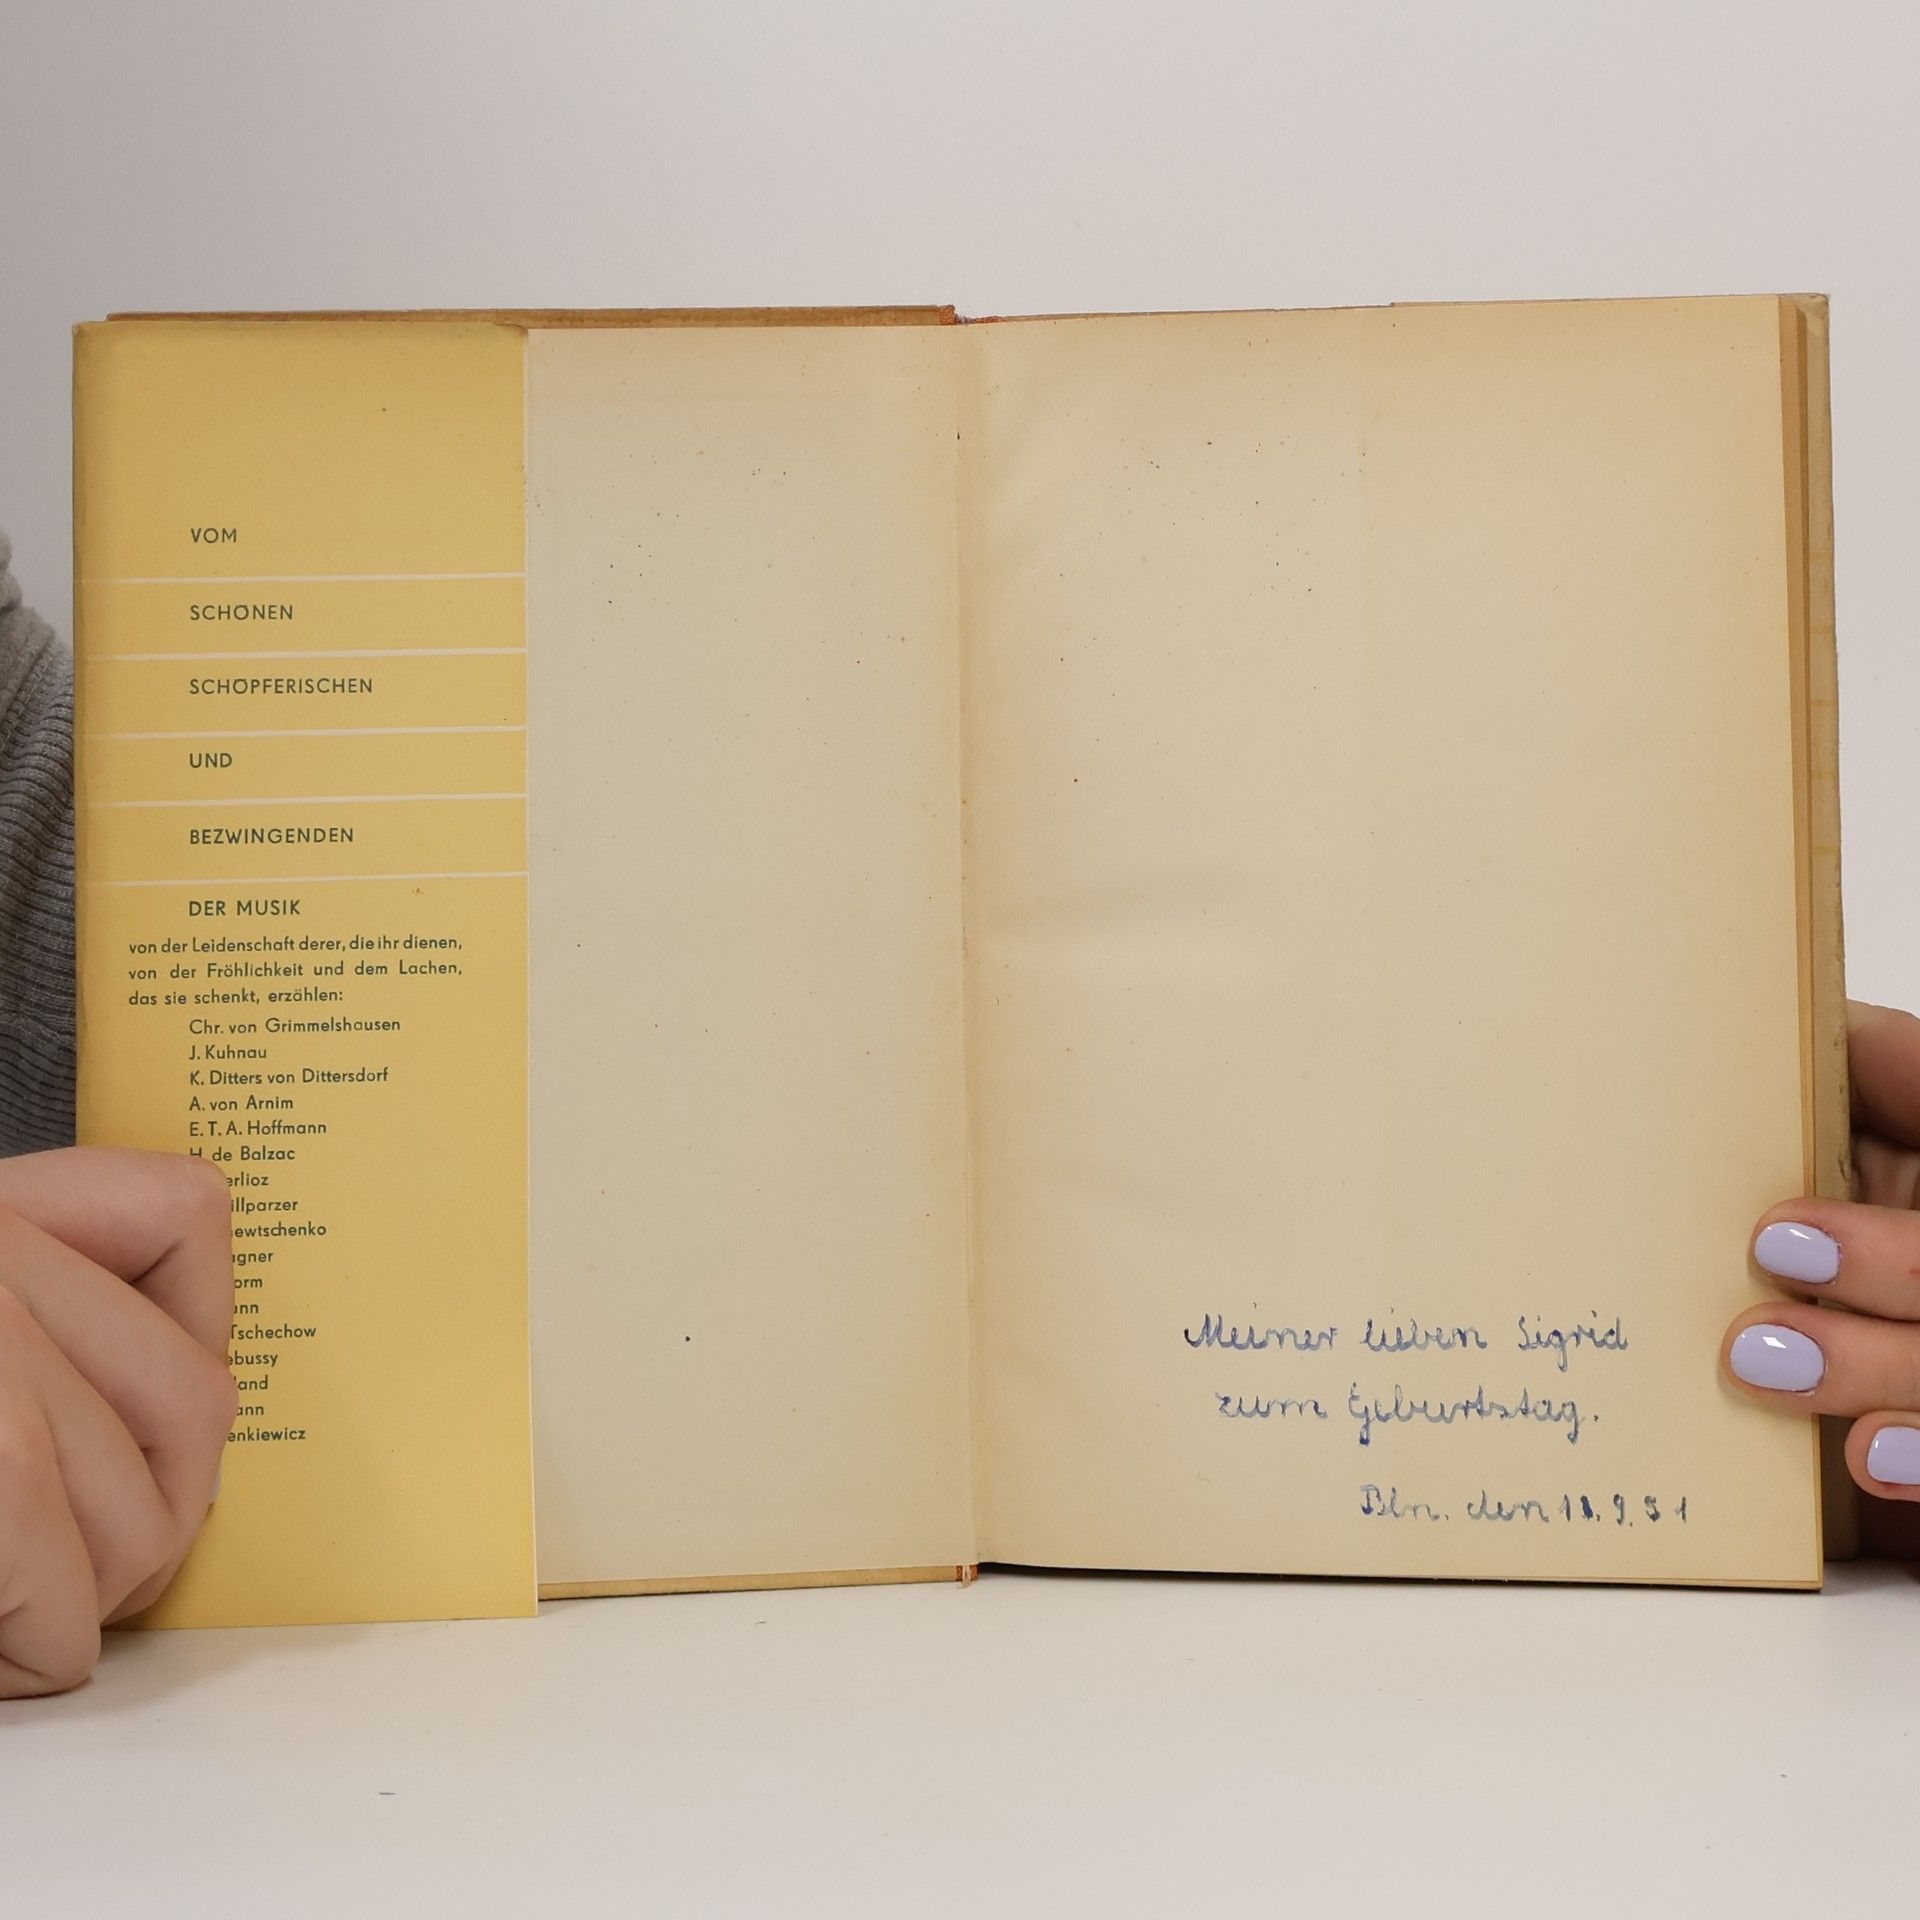 VOM
SCHÖNEN
SCHÖPFERISCHEN
UND
BEZWINGENDEN
DER MUSIK
von der Leidenschaft derer, die ihr dienen,
von der Fröhlichkeit und dem Lachen,
das sie schenkt, erzählen:
Chr. von Grimmelshausen
J. Kuhnau
K. Ditters von Dittersdorf
A. von Arnim
E. T. A. Hoffmann
H. de Balzac
erlioz
illparzer
ewtschenko
agner
orm
ann
Tschechow
ebussy
land
ann
enkiewicz
Meiner lieben Sigrid
zum Geburtstag.
Bln. den